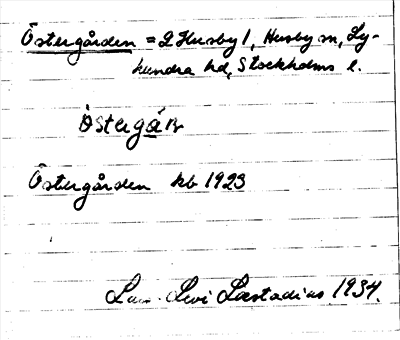 Östergården = 2 Husby 1, Husby sn, Ly-
hundra hd, Stockholms l.
Östergá̱ɳ
Östergården kb 1923
Lars Levi Læstadius 1934.